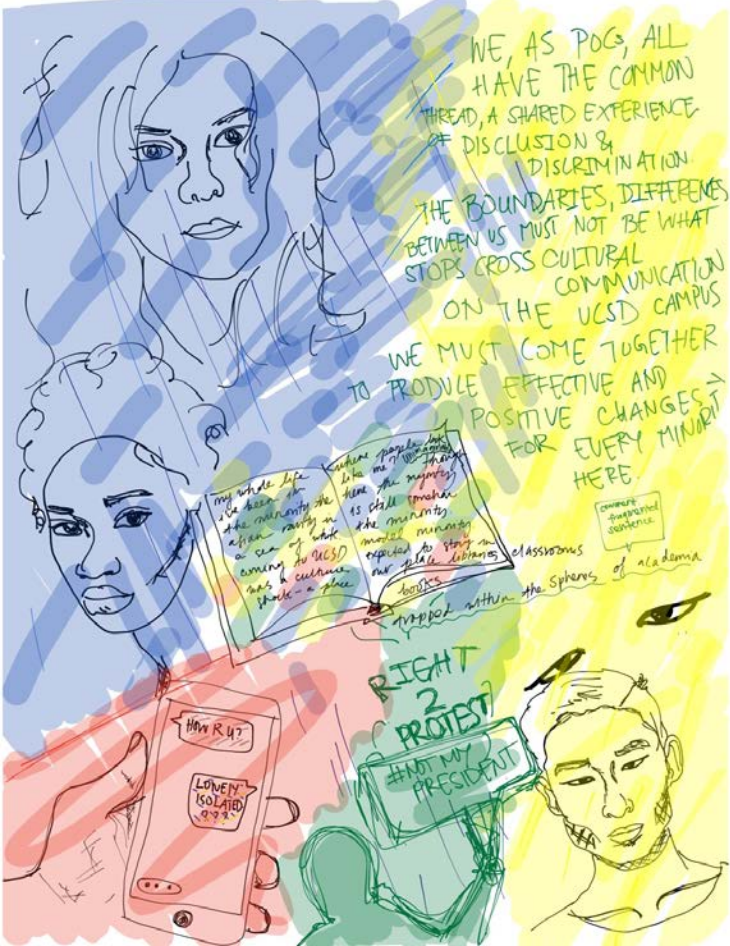 WE, AS POCS, ALL
HAVE THE COMMON
THREAD, A SHARED EXPERIENCE
OF DISCLUSION &
DISCRIMINATION.
THE BOUNDARIES, DIFFERENCES
BETWEEN US MUST NOT BE WHAT
STOPS CROSS CULTURAL
COMMUNICATION
ON THE UCSD CAMPUS
WE MUST COME TOGETHER
TO PRODUCE EFFECTIVE AND
POSITIVE CHANGES
FOR EVERY MINORITY
HERE.
my whole life
i've been in
the minority the
asian rarity in
a sea of white
coming to UCSD
was a culture
shock - a place
where people look
like me?
here the majority
is still somehow
the minority
model minority
expected to stay in
our place libraries classrooms
books
trapped within the spheres of academia
comment:
fragmented
sentence
RIGHT
2
PROTEST
#NOT MY
PRESIDENT
HOW R U?
LONELY
ISOLATED
???